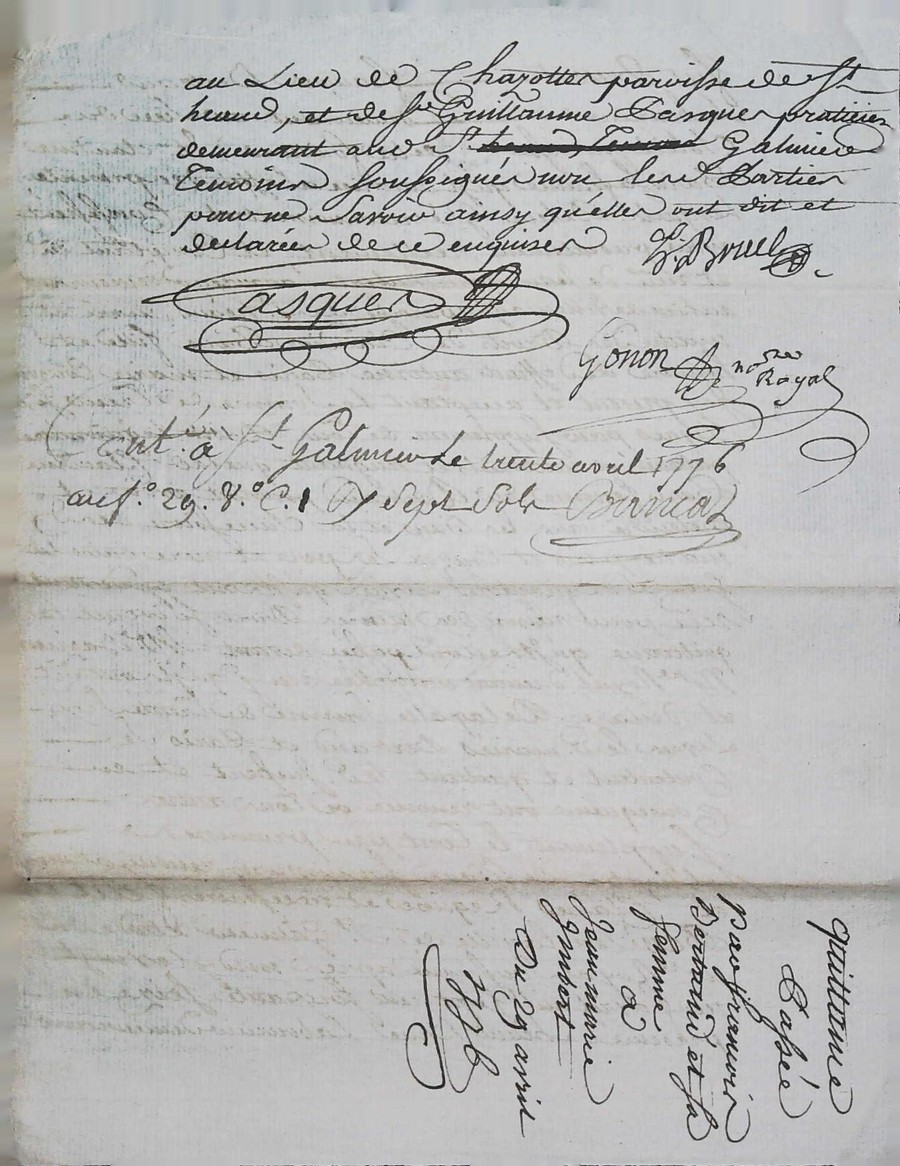 au Lieu de Chazottes parroisse de St
heand, et de Sr Guillaume Pasques praticien
demeurant aud St Galmier
Temoins soussignés non les Parties
pour ne Savoir ainsy quelles ont dit et
declarées de ce enquises
Bruel
Pasques
Gonon nore Royal
Cntlé a St Galmier Le trente avril 1776
au f.o 29. V.o C. 1 Sept Sols
quittance
Passée
par francois
Bertrand et sa
femme
a
Jeanmarie
Imbert
Du 29 avril
1776